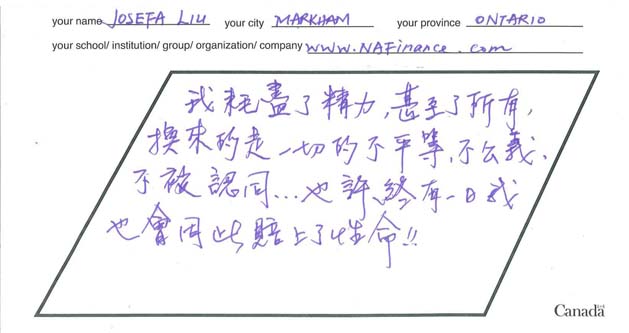 your name JOSEFA LIU your city MARKHAM your province ONTARIO
your school/ institution/ group/ organization/ company www.NAFinance.com
我耗盡了精力,甚至了所有,
換來的是一切的不平等,不公義、
不被認同...也許,終有一日我
也會因此賠上了性命!!
Canada